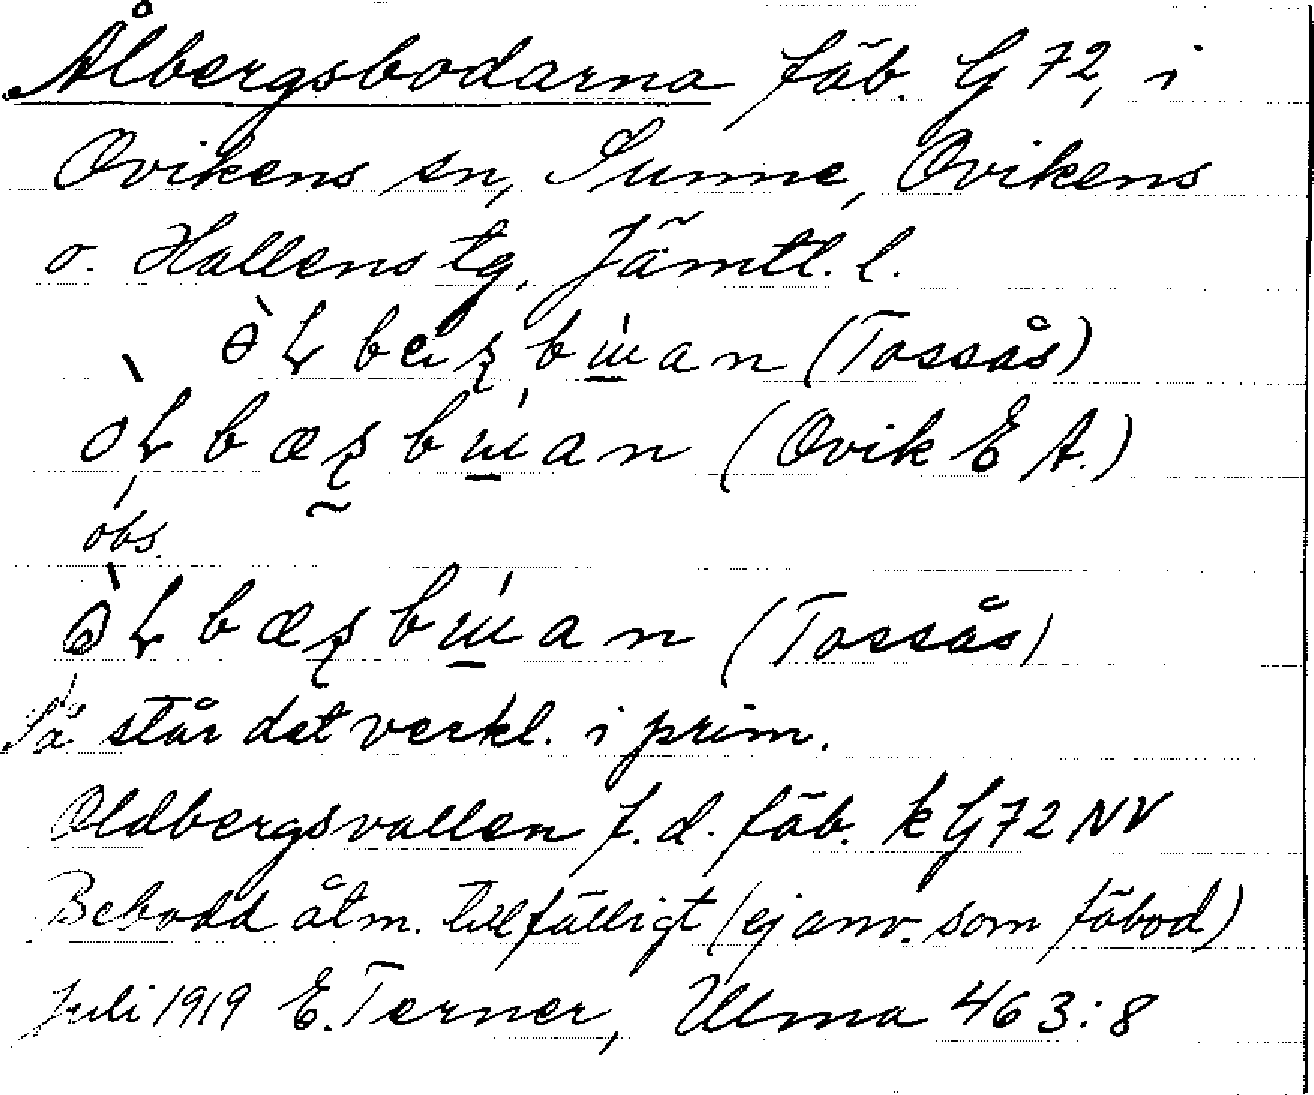 Ålbergsbodarna fäb. G 72, i
Ovikens sn, Sunne, Ovikens
o. Hallens tg, Jämtl. l.
(Tossås)
(Ovik E A.)
obs.
(Tossås)
Så står det verkl. i prim.
Oldbergsvallen f.d. fäb. k G 72 NV
Bebodd åtm. tillfälligt (ej anv. som fäbod)
Juli 1919 E. Terner, Ulma 463:8